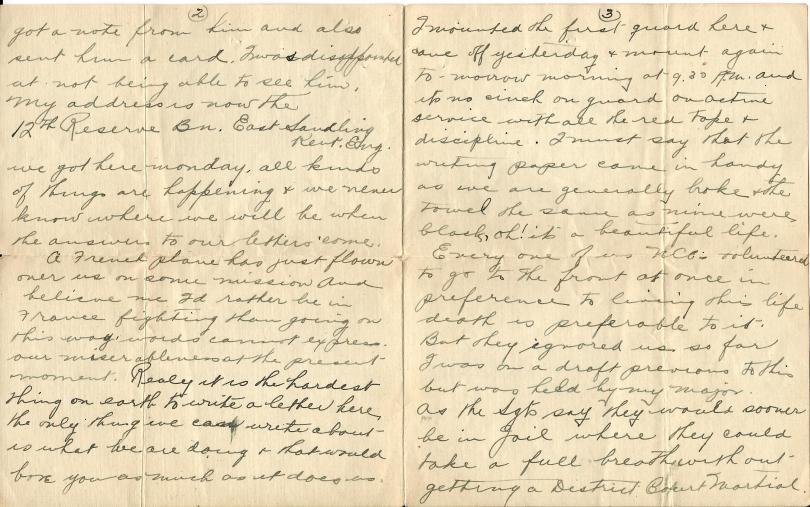 2
got a note from him and also
sent him a card. I was disappointed
at not being able to see him.
My address is now the
12th Reserve Bn. East Sandling
Kent. Eng.
we got here monday, all kinds
of things are happening & we never
know where we will be when
the answers to our letters come.
A French plane has just flown
over us on some mission and
believe me I'd rather be in
France fighting than going on
this way. words cannot express
our miserableness at the present
moment. Realy it is the hardest
thing on earth to write a letter here,
the only thing we can write about
is what we are doing & that would
bore you as much as it does us.
3
I mounted the first guard here &
came off yesterday & mount again
to-morrow morning at 9.30 A.m. and
its no cinch on guard on active
service with all the red tape &
discipline. I must say that the
writing paper came in handy
as we are generally broke & the
towel the same as mine were
black, oh! it's a beautiful life.
Every one of us NCO's volunteered
to go to the front at once in
preference to living this life
death is preferable to it.
But they ignored us so far
I was on a draft previous to this
but was held by my major.
As the Sgts say they would sooner
be in Jail where they could
take a full breath without
gettting a District Court Martial.